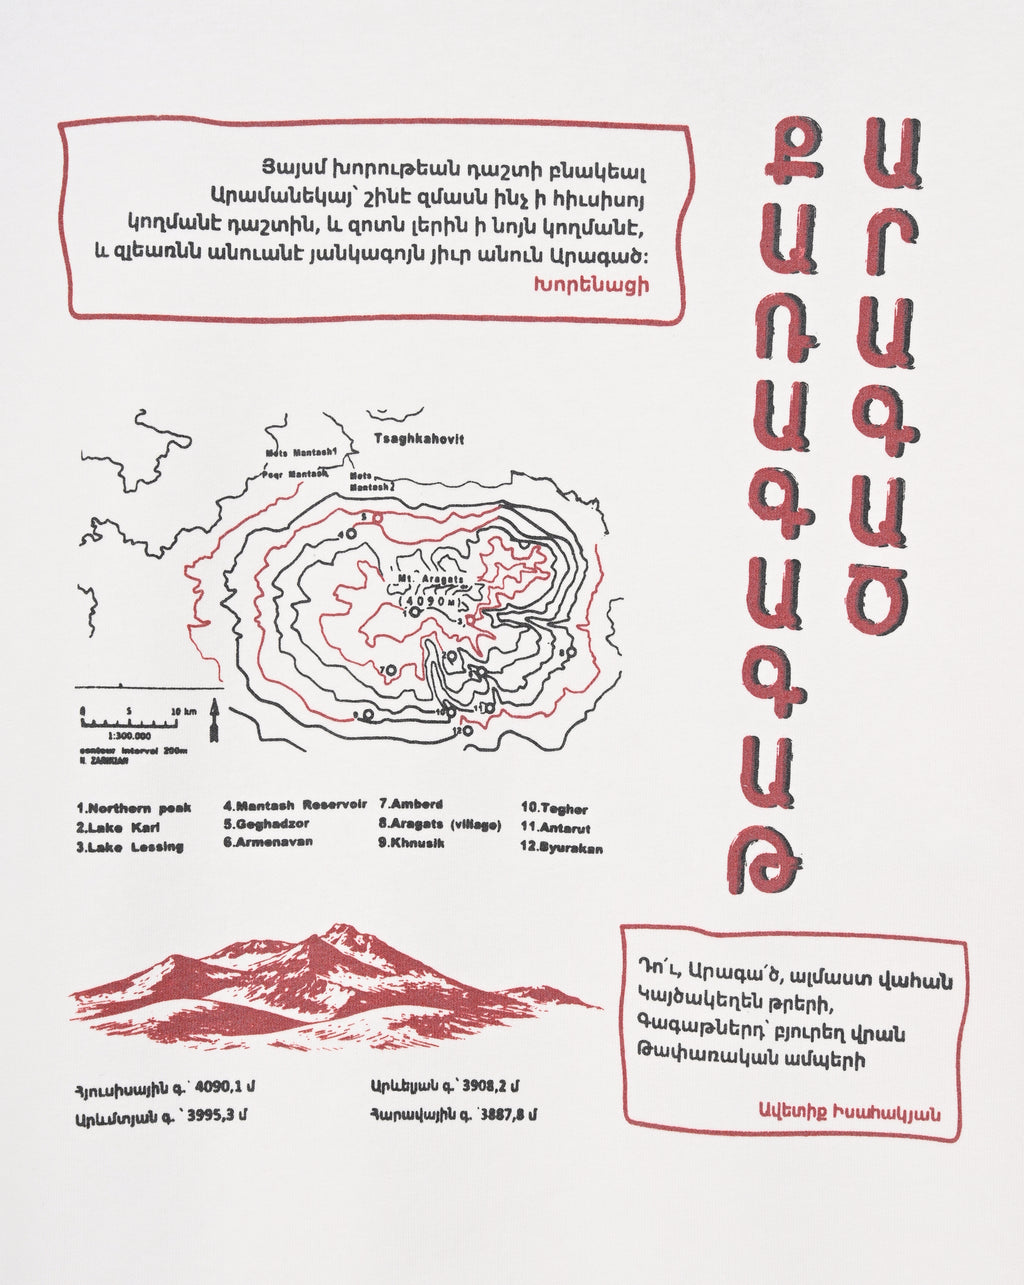 Յայսմ խորութեան դաշտի բնակեալ
Արամանեկայ՝ շինէ զմասն ինչ ի հիւսիսոյ
կողմանէ դաշտին, և զոտն լերին ի նոյն կողմանէ,
և զլեառնն անուանէ յանկագոյն յիւր անուն Արագած:
Խորենացի
ԱՐԱԳԱԾ
ՔԱՌԱԳԱԳԱԹ
Tsaghkahovit
Mets Mantash1
Poqr Mantash
Mets
Mantash2
5
4
Mt. Aragats
(4090м)
1
3
2
7
8
9
10
11
12
0 5 10 km
1:300.000
contour interval 200m
N. ZARIKIAN
1.Northern peak
2.Lake Kari
3.Lake Lessing
4.Mantash Reservoir
5.Geghadzor
6.Armenavan
7.Amberd
8.Aragats (village)
9.Khnusik
10.Tegher
11.Antarut
12.Byurakan
Հյուսիսային գ.՝ 4090,1 մ
Արևմտյան գ.՝ 3995,3 մ
Արևելյան գ.՝ 3908,2 մ
Հարավային գ.՝ 3887,8 մ
Դո՛ւ, Արագա՛ծ, ալմաստ վահան
Կայծակեղեն թրերի,
Գագաթներդ՝ բյուրեղ վրան
Թափառական ամպերի
Ավետիք Իսահակյան